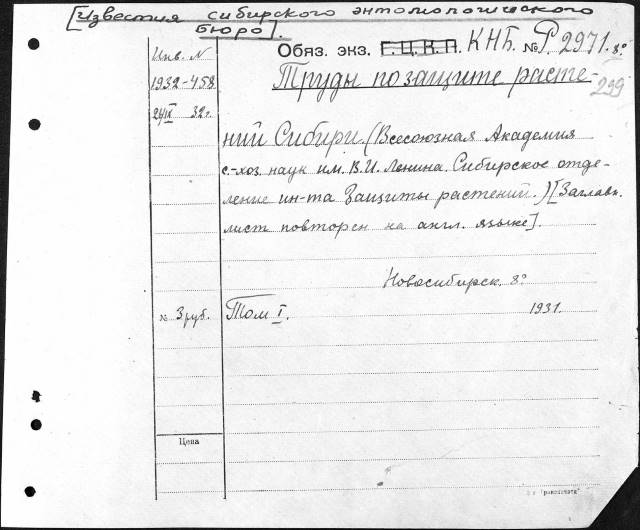 [Известия сибирского энтомологического
бюро].
Обяз. экз. Г.Ц.К.П. КНБ. № Р. 2971. 8º
Инв. №
1932-458
Труды по защите расте-
299
24/IX 32 г.
ний Сибири. (Всесоюзная Академия
с.-хоз. наук им. В.И. Ленина. Сибирское отде-
ление ин-та Защиты растений.) [Заглавн.
лист повторен на англ. языке].
Новосибирск. 8º
№ 3 руб. Том I. 1931.
Цена